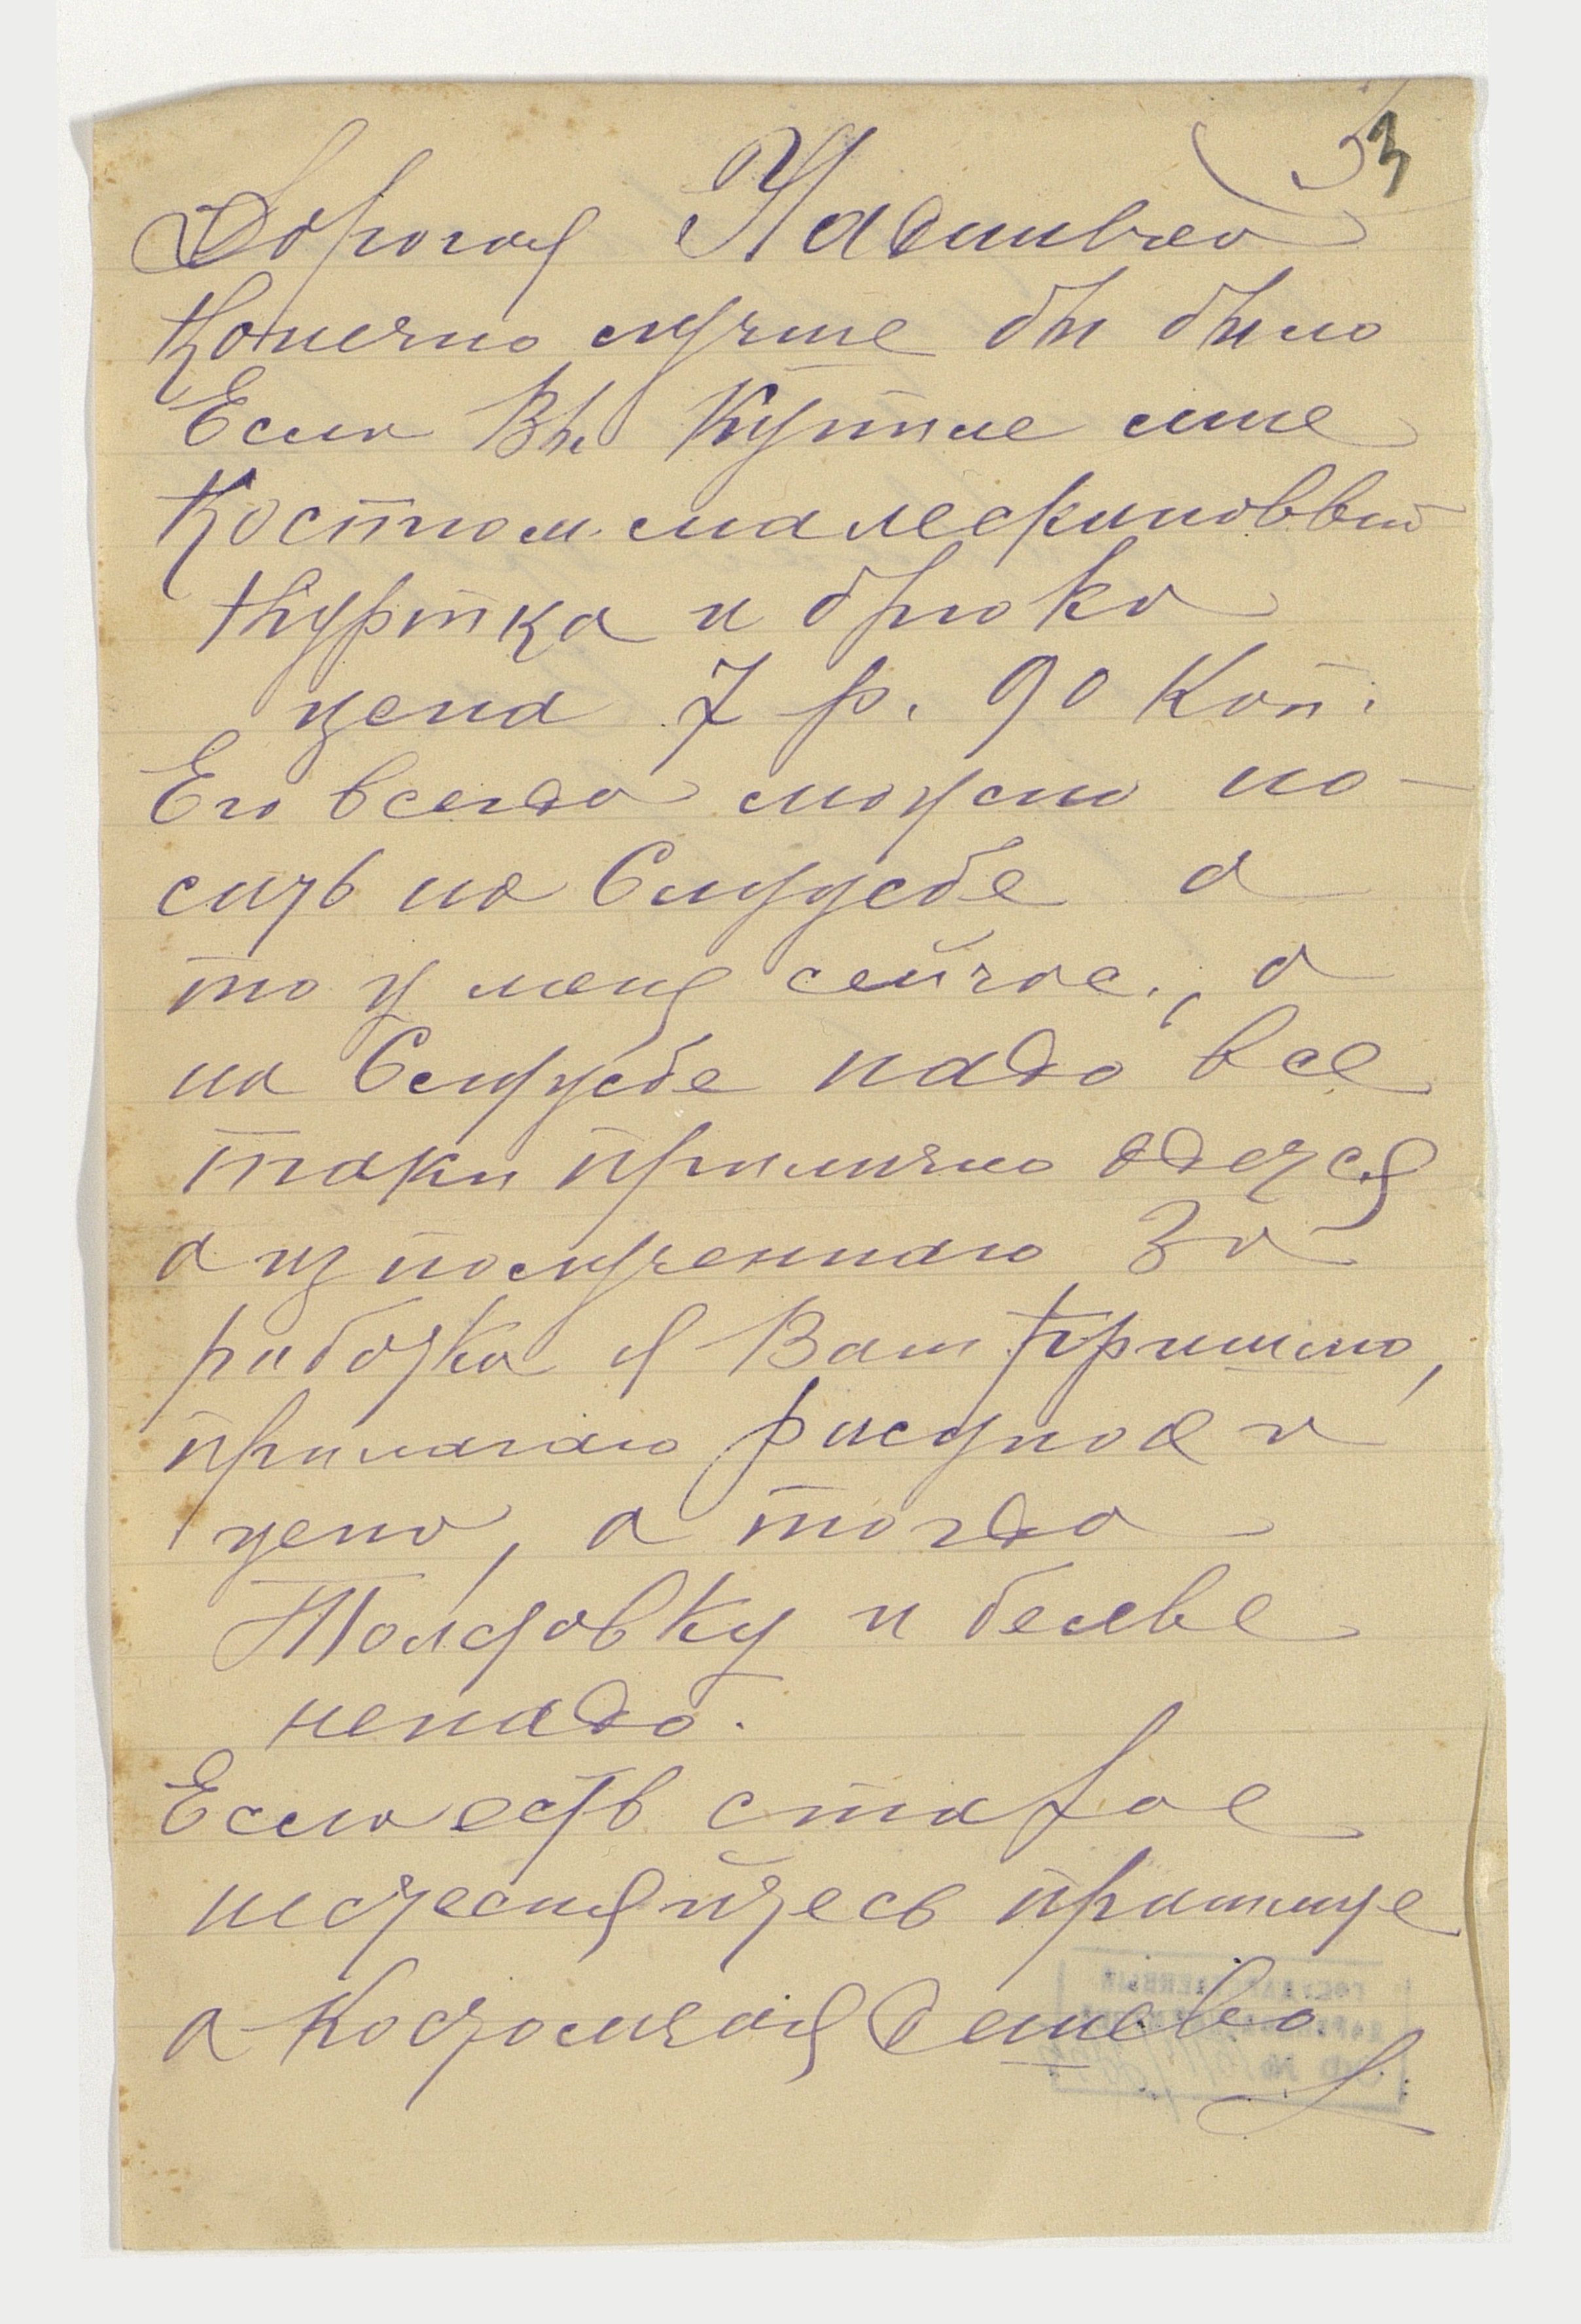 3
Дорогая Надинька
Конечно лучше бы было
Если Вы Купите мне
Костюм малескиноввый
Куртка и брюки
цена 7 р. 90 Коп.
Его всегда можно но-
сить на Службе а
то у меня сейчас., а
на Службе надо все
таки прилично одется
а из полученнаго За
работка я Вам пришлю,
прилагаю рисунок и
цену, а тогда
Толстовку и белье
ненадо.
Если есть старое
нестесняйтесь пришлите
а дешево.